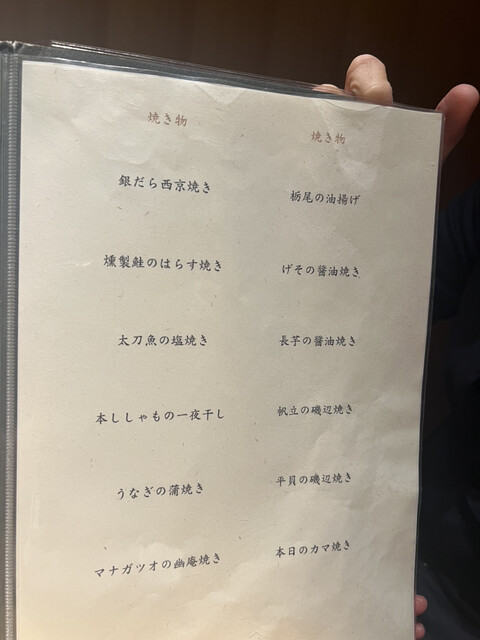 焼き物
銀だら西京焼き
燻製鮭のはらす焼き
太刀魚の塩焼き
本ししゃもの一夜干し
うなぎの蒲焼き
マナガツオの幽庵焼き
焼き物
栃尾の油揚げ
げその醤油焼き
長芋の醤油焼き
帆立の磯辺焼き
平貝の磯辺焼き
本日のカマ焼き